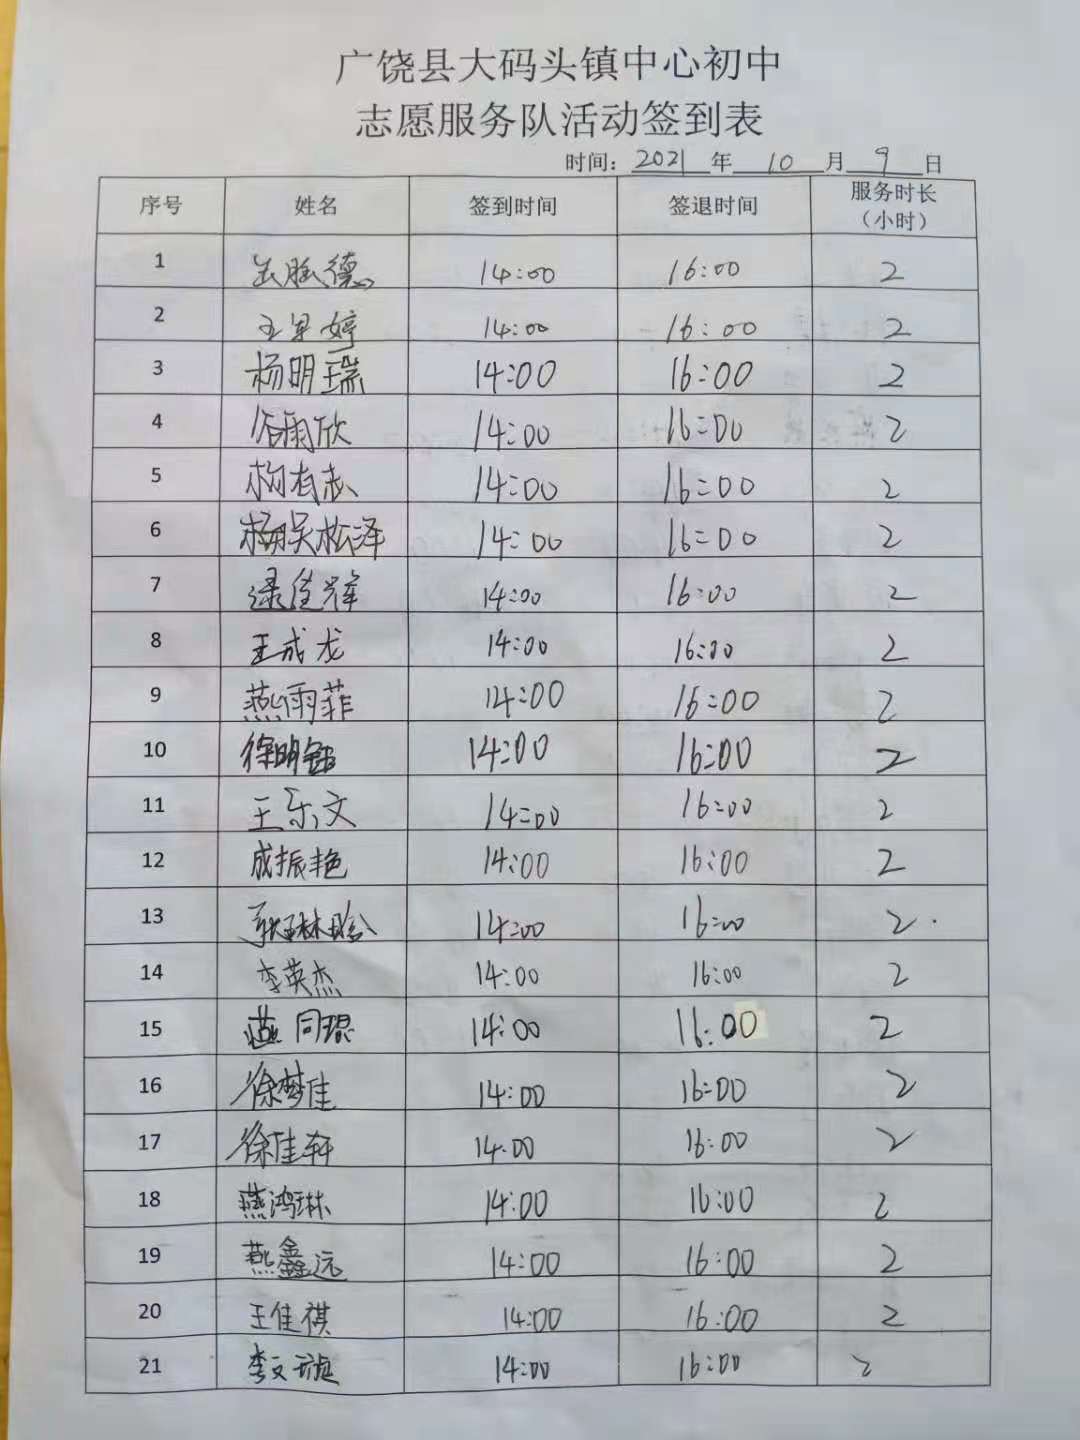 广饶县大码头镇中心初中
志愿服务队活动签到表
时间：2021年10月9日
序号 姓名 签到时间 签退时间 服务时长
（小时）
1 德 14:00 16:00 2
2 王 婷 14:00 16:00 2
3 杨明瑞 14:00 16:00 2
4 雨欣 14:00 16:00 2
5 有志 14:00 16:00 2
6 杨昊松泽 14:00 16:00 2
7 佳辉 14:00 16:00 2
8 王成龙 14:00 16:00 2
9 燕雨菲 14:00 16:00 2
10 徐明 14:00 16:00 2
11 王乐文 14:00 16:00 2
12 成振艳 14:00 16:00 2
13 耿琳晗 14:00 16:00 2
14 李英杰 14:00 16:00 2
15 燕同琨 14:00 16:00 2
16 徐梦佳 14:00 16:00 2
17 徐佳轩 14:00 16:00 2
18 燕鸿琳 14:00 16:00 2
19 燕鑫远 14:00 16:00 2
20 王佳祺 14:00 16:00 2
21 李文璇 14:00 16:00 2